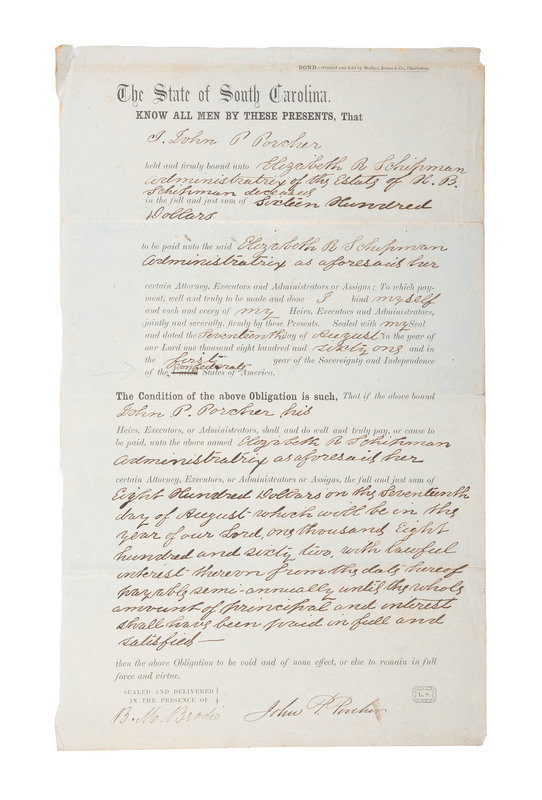 BOND.—Printed and sold by Walker, Evans & Co., Charleston.
The State of South Carolina.
KNOW ALL MEN BY THESE PRESENTS, That
I, John P Porcher
held and firmly bound unto Elizabeth R Schipman
Administratrix of the Estate of R. B.
Schipman deceased
in the full and just sum of Sixteen Hundred
Dollars
to be paid unto the said Elizabeth R Schipman
Administratrix as aforesaid her
certain Attorney, Executors and Administrators or Assigns; To which pay-
ment, well and truly to be made and done I bind myself
and each and every of my Heirs, Executors and Administrators,
jointly and severally, firmly by these Presents. Sealed with my Seal
and dated the Seventeenth day of August in the year of
our Lord one thousand eight hundred and sixty one and in
the first year of the Sovereignty and Independence
of the United Confederate States of America.
The Condition of the above Obligation is such, That if the above bound
John P. Porcher his
Heirs, Executors, or Administrators, shall and do well and truly pay, or cause to
be paid, unto the above named Elizabeth R Schipman
Administratrix as aforesaid her
certain Attorney, Executors, or Administrators or Assigns, the full and just sum of
Eight Hundred Dollars on the Seventeenth
day of August which will be in the
year of our Lord, one thousand Eight
hundred and sixty two, with lawful
interest thereon from the date hereof
payable semi-annually until the whole
amount of principal and interest
shall have been paid in full and
satisfied—
then the above Obligation to be void and of none effect, or else to remain in full
force and virtue.
SEALED AND DELIVERED
IN THE PRESENCE OF
L.S.
B. M. Brodie
John P Porcher